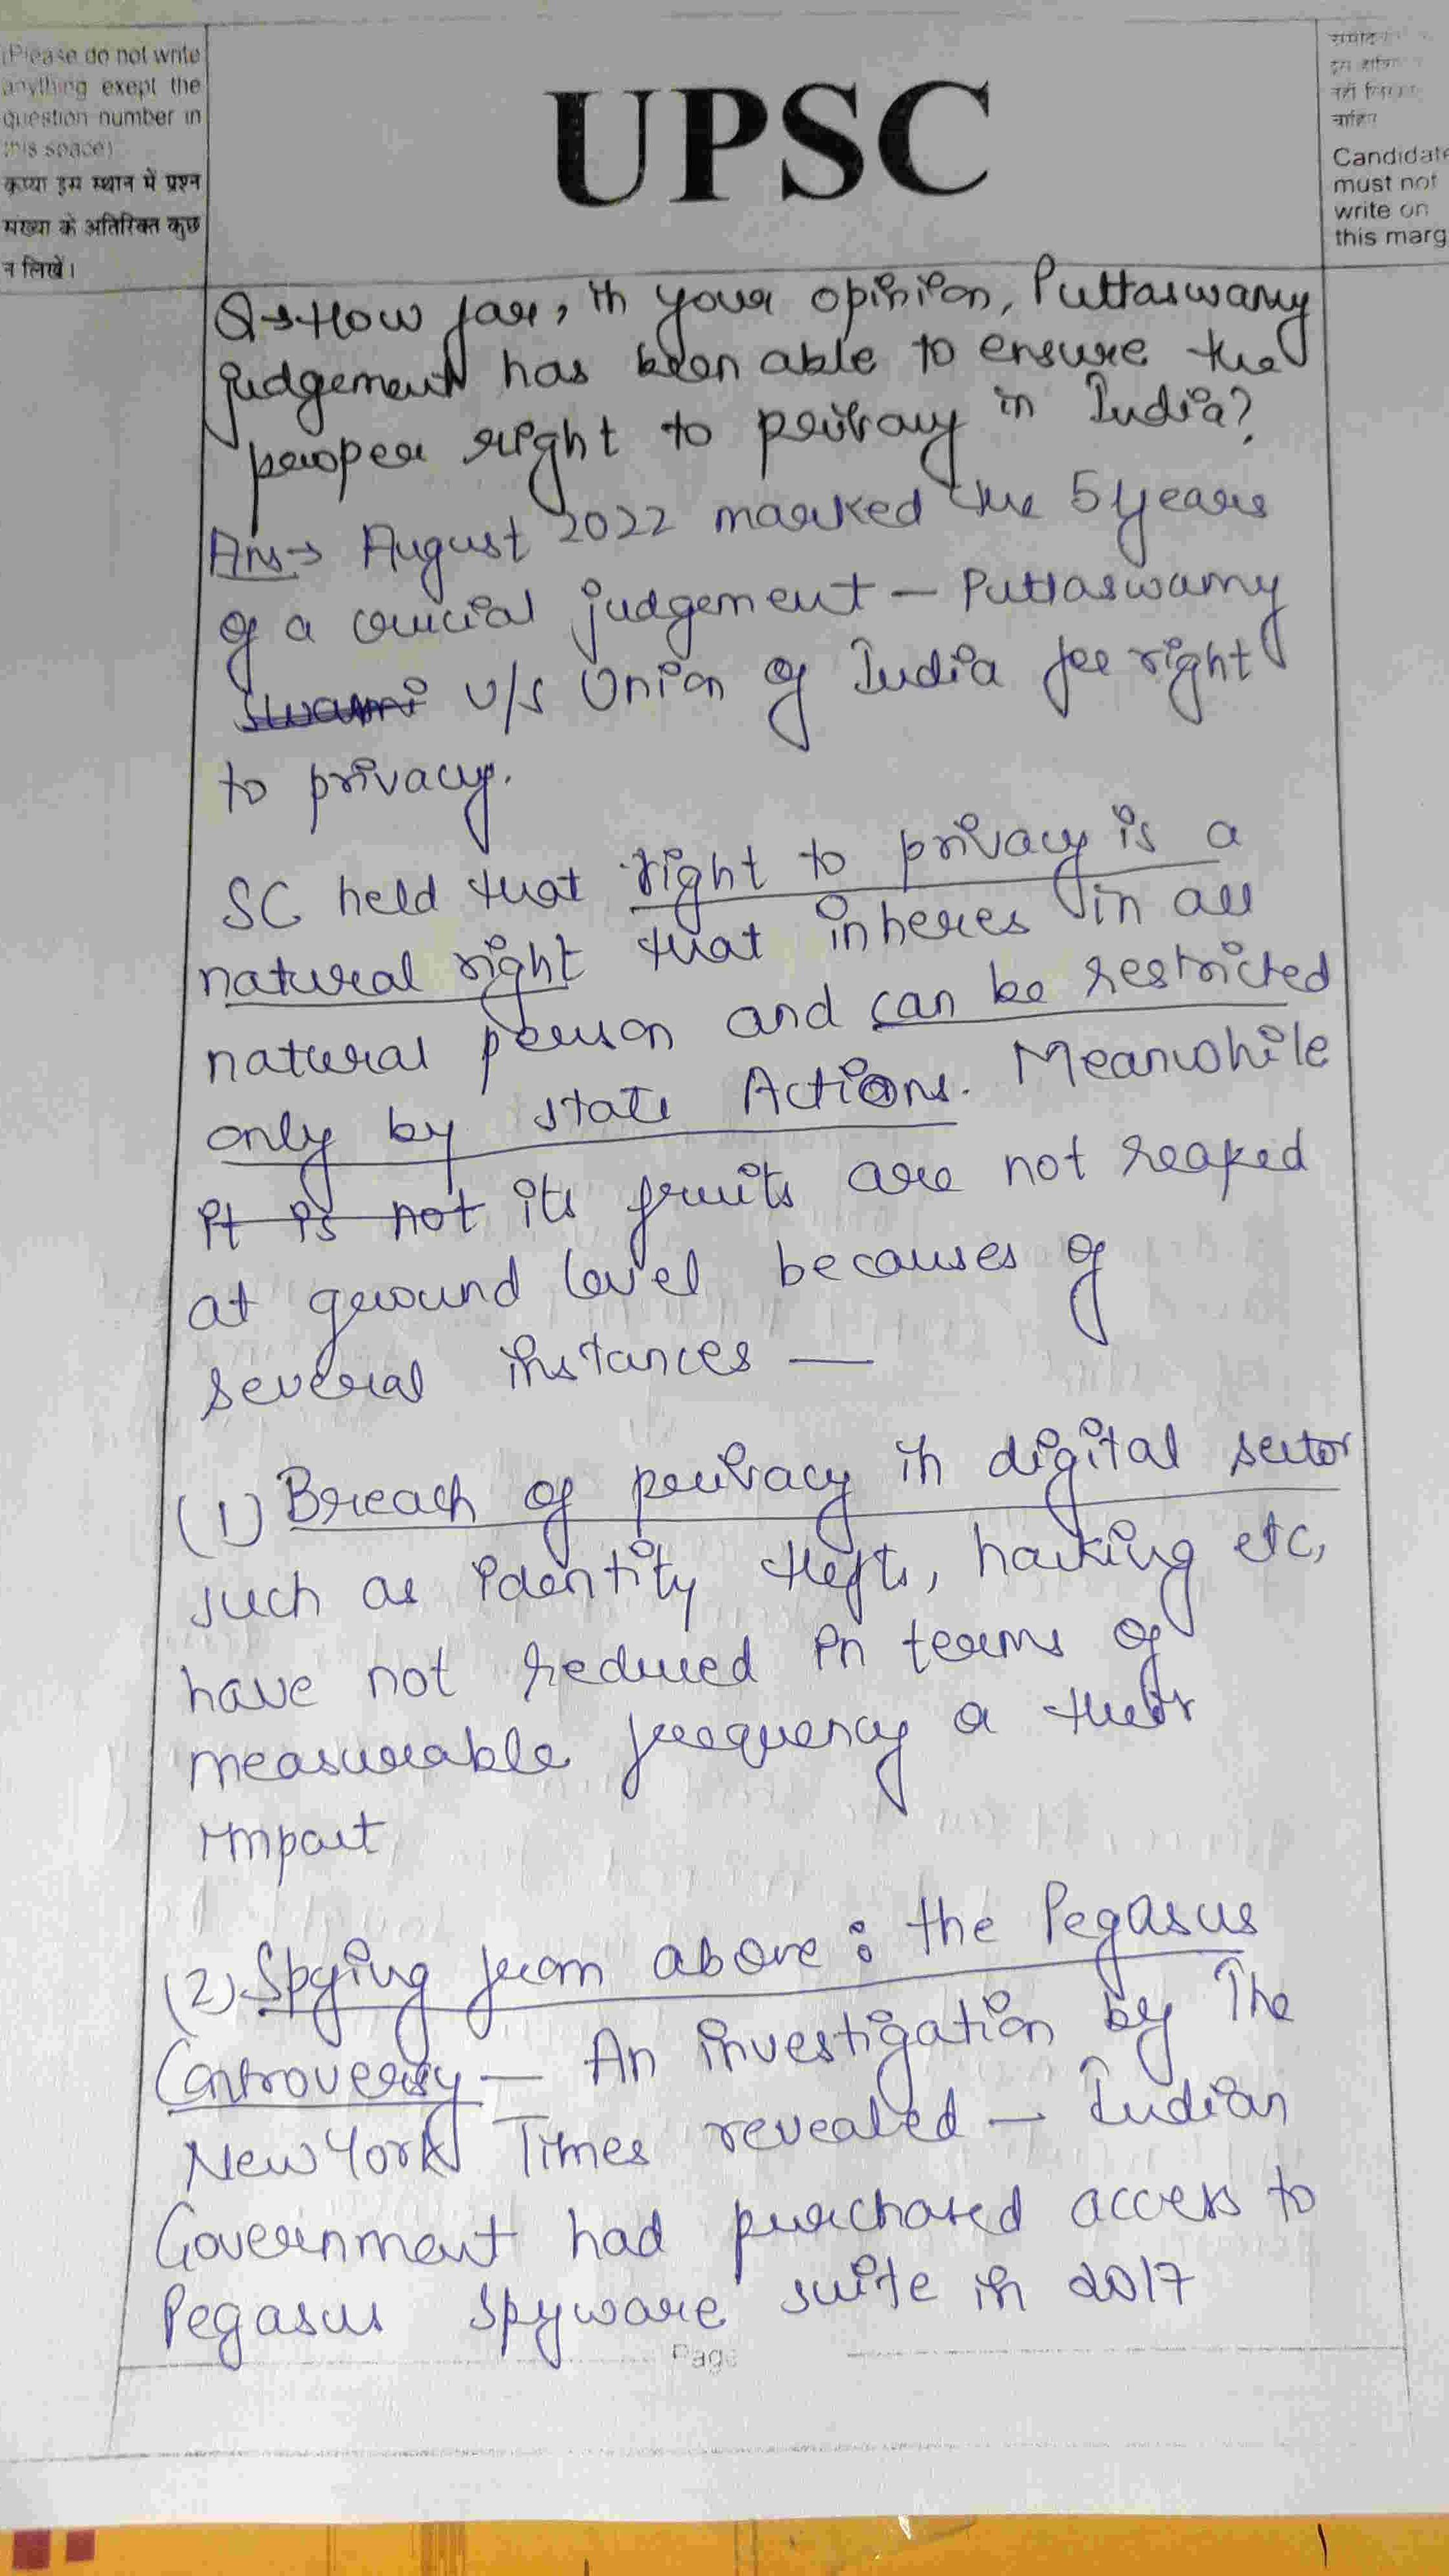 (Please do not write
anything exept the
question number in
this space)
कृप्या इस स्थान में प्रश्न
संख्या के अतिरिक्त कुछ
न लिखें।
UPSC
नहीं
चाहिए
Candidate
must not
write on
this marg
Q→ How far, in your opinion, Puttaswamy
judgement has been able to ensure the
proper right to privacy in India?
Ans→ August 2022 marked the 5 years
of a crucial judgement – Puttaswamy
Swami v/s Union of India for right
to privacy.
SC held that right to privacy is a
natural right that inheres in all
natural person and can be restricted
only by state Actions. Meanwhile
it is not its fruits are not reaped
at ground level becauses of
several instances —
(1) Breach of privacy in digital sector
such as identity thefts, hacking etc,
have not reduced in terms of
measurable frequency a their
impact
(2) Spying from above : the Pegasus
Controversy — An investigation by The
New York Times revealed – Indian
Government had purchased access to
Pegasus spyware suite in 2017
Page